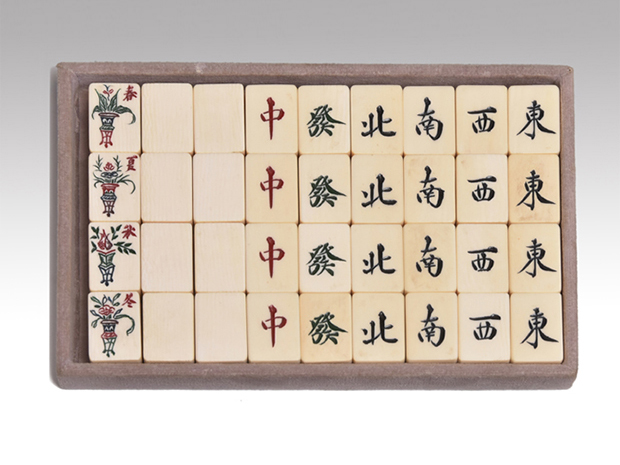 春 中 發 北 南 西 東
夏 中 發 北 南 西 東
秋 中 發 北 南 西 東
冬 中 發 北 南 西 東